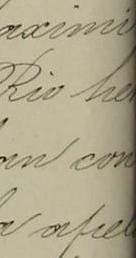 aximi
Rio he
an con
a apel